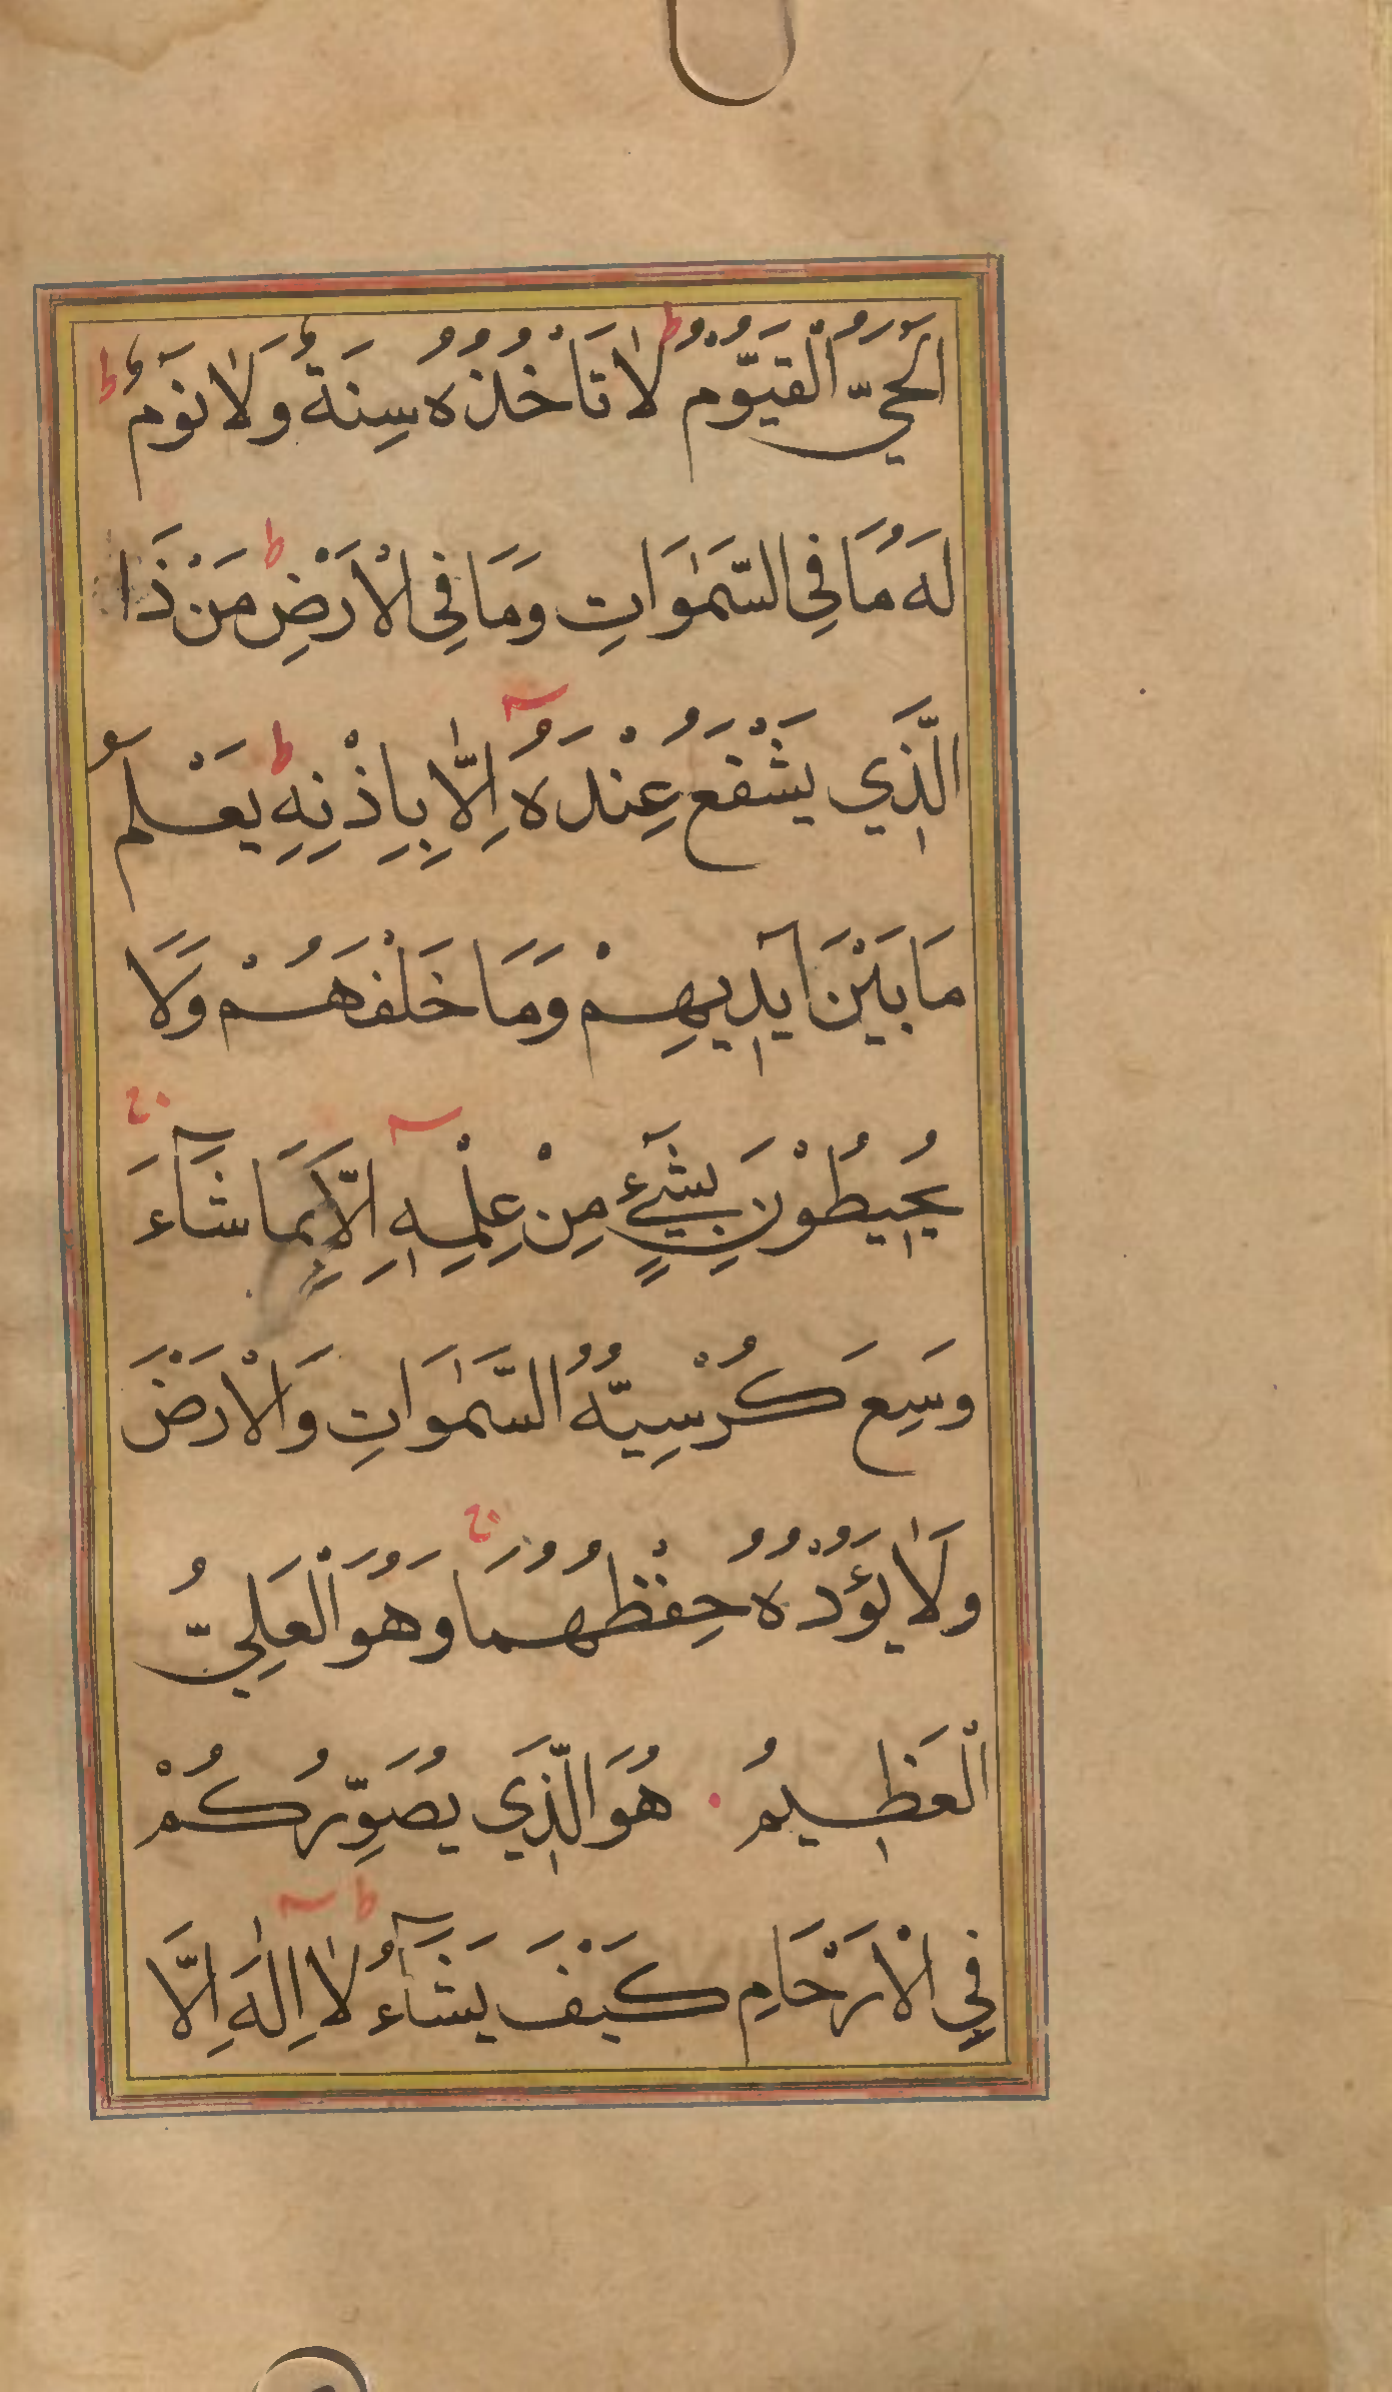 اَلْحَيُّ الْقَيُّوْمُ ۚ لَا تَاْخُذُهُ سِنَةٌ وَلَا نَوْمٌ ؕ
لَهُ مَا فِي السَّمٰوَاتِ وَمَا فِي الْاَرْضِ ؕ مَنْ ذَا
الَّذِي يَشْفَعُ عِنْدَهُ اِلَّا بِاِذْنِهِ ؕ يَعْلَمُ
مَا بَيْنَ اَيْدِيهِمْ وَمَا خَلْفَهُمْ وَلَا
يُحِيطُوْنَ بِشَيْءٍ مِنْ عِلْمِهِ اِلَّا بِمَا شَآءَ ۚ
وَسِعَ كُرْسِيُّهُ السَّمٰوَاتِ وَالْاَرْضَ
وَلَا يَؤُدُهُ حِفْظُهُمَا ۚ وَهُوَ الْعَلِيُّ
الْعَظِيمُ ۰ هُوَ الَّذِي يُصَوِّرُكُمْ
فِي الْاَرْحَامِ كَيْفَ يَشَآءُ ؕ لَا اِلٰهَ اِلَّا